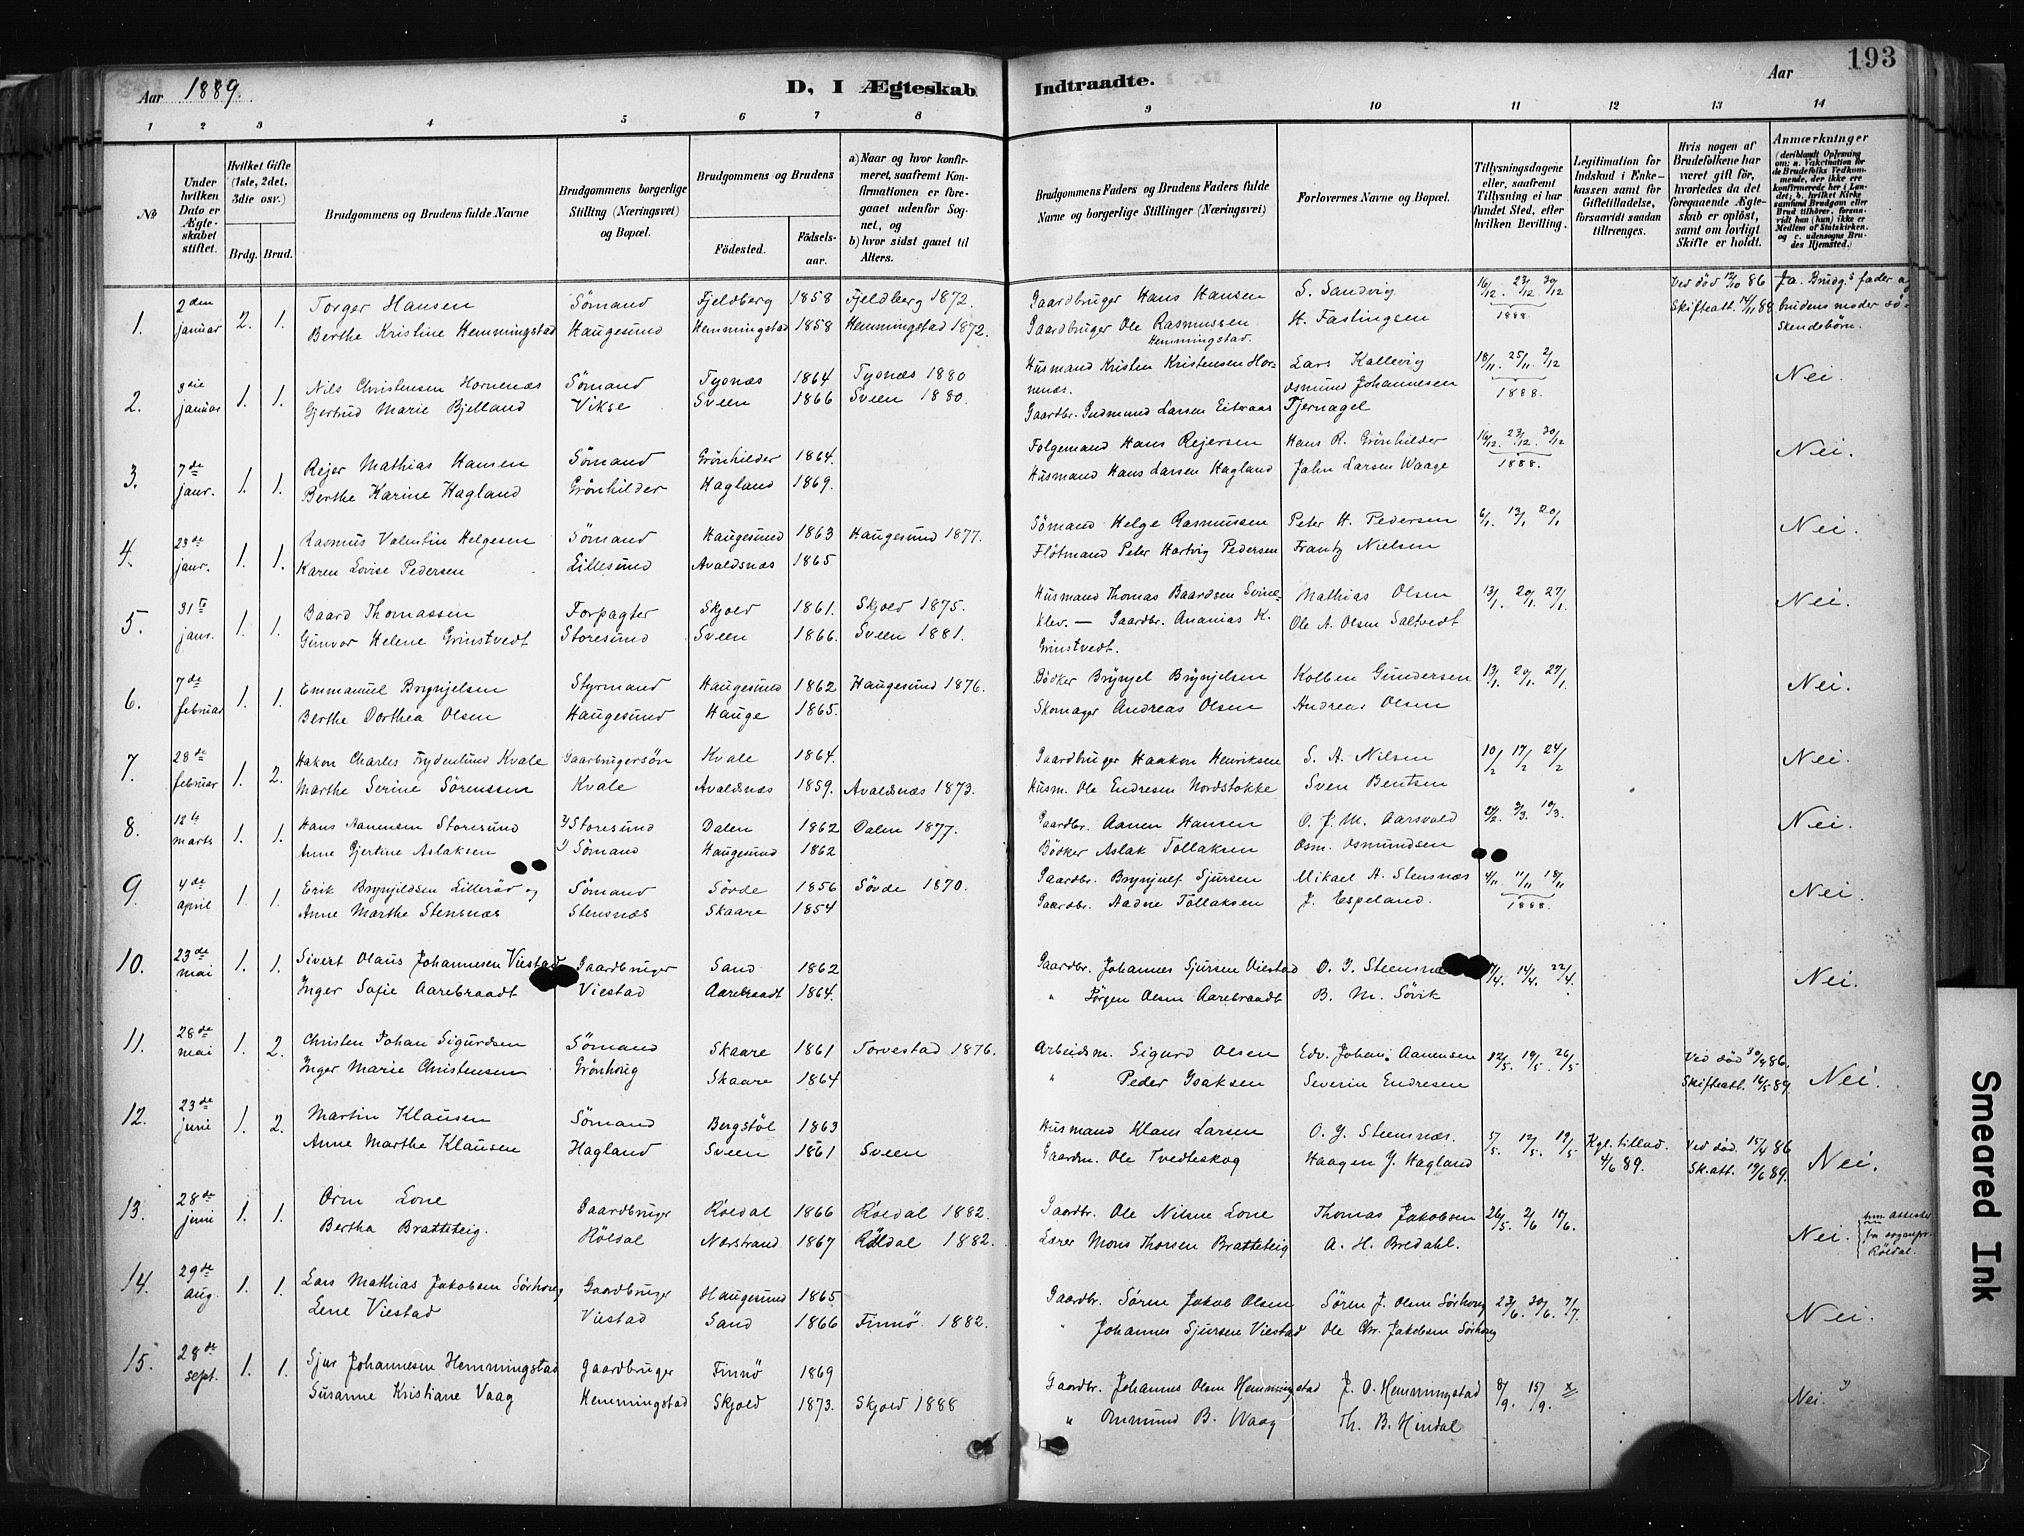 193
Aar 1889.
D, I Ægteskab Indtraadte.
Aar
1 2 3 4 5 6 7 8 9 10 11 12 13 14
№
Under hvilken Dato er Ægteskabet stiftet.
Hvilket Gifte (1ste, 2det, 3die osv.)
Brdg. Brud.
Brudgommens og Brudens fulde Navne
Brudgommens borgerlige Stilling (Næringsvei) og Bopæl.
Brudgommens og Brudens
Fødested.
Fødselsaar.
a) Naar og hvor konfirmeret, saafremt Konfirmationen er foregaaet udenfor Sognet, og
b) hvor sidst gaaet til Alters.
Brudgommens Faders og Brudens Faders fulde Navne og borgerlige Stillinger (Næringsvei)
Forlovernes Navne og Bopæl.
Tillysningsdagene eller, saafremt Tillysning ei har fundet Sted, efter hvilken Bevilling.
Legitimation for Indskud i Enkekassen samt for Giftetilladelse, forsaavidt saadan tiltrænges.
Hvis nogen af Brudefolkene har været gift før, hvorledes da det foregaaende Ægteskab er opløst, samt om lovligt Skifte er holdt.
Anmærkninger
(deriblandt Oplysning om: a. Vakcination for de Brudefolks Vedkommende, der ikke ere konfirmerede her i Landet; b. hvilket Kirkesamfund Brudgom eller Brud tilhører, forsaavidt han (hun) ikke er Medlem af Statskirken. og c. udensogns Brudes Hjemsted.)
1. 2den januar 2. 1. Torger Hansen Sömand Fjeldberg 1858 Fjeldberg 1872. Gaardbruger Hans Hansen S. Sandvig 16/12. 23/12 30/12 1888 Ved död 12/10 86 Ja. Brudg.s fader og
Berthe Kristine Hemmingstad Haugesund Hemmingstad 1858 Hemmingstad 1872. Gaardbruger Ole Rasmussen Hemmingstad. H. Fastingsen Skifteatt. 14/11 88. brudens moder sö-
skendebörn.
2. 3die januar 1. 1. Nils Christensen Hornenæs Sömand Tysnæs 1864 Tysnæs 1880 Husmand Kristen Kristensen Hornenæs. Lars Kallevig 18/11. 25/11. 2/12 1888. Nei.
Gjertrud Marie Bjelland Vikse Sveen 1866 Sveen 1880. Gaardbr. Gudmund Larsen Eitraas Osmund Johannesen Tjernagel
3. 7de janr. 1. 1. Rejer Mathias Hansen Sömand Grönhilder 1864. Folgemand Hans Rejersen Hans R. Grönhilder 16/12. 23/12. 30/12 1888. Nei.
Berthe Karine Hagland Grönhilder Hagland 1869. Husmand Hans Larsen Hagland Jahn Larsen Waage
4. 23de janr. 1. 1. Rasmus Valentin Helgesen Sömand Haugesund 1863 Haugesund 1877. Sömand Helge Rasmussen Peter H. Pedersen 6/1. 13/1 20/1 Nei.
Karen Lovise Pedersen Lillesund Avaldsnæs 1865 Flötmand Peter Hartvig Pedersen Frantz Nielsen
5. 31te janr. 1. 1. Baard Thomassen Forpagter Skjold 1861. Skjold 1875. Husmand Thomas Baardsen Svineklev. Mathias Olsen 13/1. 20/1 27/1 Nei.
Gunvor Helene Grinstvedt Storesund Sveen 1866. Sveen 1881. — Gaardbr. Ananias K. Grinstvedt. Ole A. Olsen Saltvedt
6. 7de februar 1. 1. Emmanuel Brynjelsen Styrmand Haugesund 1862 Haugesund 1876. Bödker Brynjel Brynjelsen Kolben Gundersen 13/1. 20/1. 27/1. Nei.
Berthe Dorthea Olsen Haugesund Hauge 1865. Skomager Andreas Olsen Andreas Olsen
7. 28de februar 1. 2. Hakon Charles Frydenlund Kvale Gaarbrugersön Kvale 1864. Gaardbruger Haakon Henriksen S. A. Nilsen 10/2 17/2 24/2 Nei.
Marthe Serine Sörenssen Kvale Avaldsnæs 1859. Avaldsnæs 1873. Husm. Ole Endresen Nordstokke Sven Bentsen
8. 12te marts 1. 1. Hans Aanensen Storesund Storesund Dalen 1862 Dalen 1877. Gaardbr. Aanen Hansen O. J. M. Aarsvold 24/2. 3/3. 10/3. Nei.
Anne Gjertine Aslaksen Sömand Haugesund 1862 Bödker Aslak Tollaksen Osm. Osmundsen
9. 4de april 1. 1. Erik Brynjeldsen Lilleröd og Sömand Sövde 1856 Sövde 1870. Gaardbr. Brynjulf Sjursen Mikael A. Stensnæs 4/11 11/11 18/11 1888. Nei.
Anne Marthe Stensnæs Stensnæs Skaare 1854 Gaardbr. Aadne Tollaksen J. Espeland.
10. 23de mai 1. 1. Sivert Olaus Johannesen Viestad Gaardbruger Sand 1862 Gaardbr. Johannes Sjursen Viestad O. J. Steensnæs 7/4. 14/4. 22/4. Nei.
Inger Sofie Aarebraadt Viestad Aarebraadt 1864. " Jörgen Olsen Aarebraadt B. M. Sövik
11. 28de mai 1. 2. Christen Johan Sigurdsen Sömand Skaare 1861 Torvestad 1876. Arbeidsm. Sigurd Olsen Edv. Johan. Aanensen 12/5. 19/5. 26/5 Ved död 30/4 86. Nei.
Inger Marie Christensen Grönhoug Skaare 1864 " Peder Isaksen Severin Endresen Skifteatt. 16/5 89.
12. 23de juni 1. 2. Martin Klausen Sömand Bergstöl 1863 Husmand Klaus Larsen O. J. Steensnæs. 5/5. 12/5. 19/5 Kgl. tillad. Ved död. 15/4 86 Nei.
Anne Marthe Klausen Hagland Sveen 1861 Sveen Gaardm. Ole Tvedteskog Haagen J. Hagland 4/6 89. Sk.att. 19/6 89.
13. 28de juni 1. 1. Orm Lone Gaardbruger Röldal 1866 Röldal 1882. Gaardbr. Ole Nilsen Lone Thomas Jakobsen 26/5. 2/6 10/6. Nei.
Bertha Bratteteig. Röldal Nærstrand 1867 Röldal 1882. Lærer Mons Thorsen Bratteteig A. H. Bredahl. Röldal.
14. 29de aug. 1. 1. Lars Mathias Jakobsen Sörhoug Gaardbruger Haugesund 1865 Gaardbr. Sören Jakob Olsen Sören J. Olsen Sörhoug 23/6. 30/6. 7/7. Nei.
Lene Viestad Viestad Sand 1866 Finnö. 1882. " Johannes Sjursen Viestad Ole Chr. Jakobsen Sörhoug
15. 28de sept. 1. 1. Sjur Johannesen Hemmingstad Gaardbruger Finnö 1869 Gaardbr. Johannes Olsen Hemmingstad J. O. Hemmingstad 8/9. 15/9. Nei.
Susanne Kristiane Vaag Hemmingstad Skjold 1873. Skjold 1888 " Ommund B. Waag Th. B. Hindal
Smeared Ink